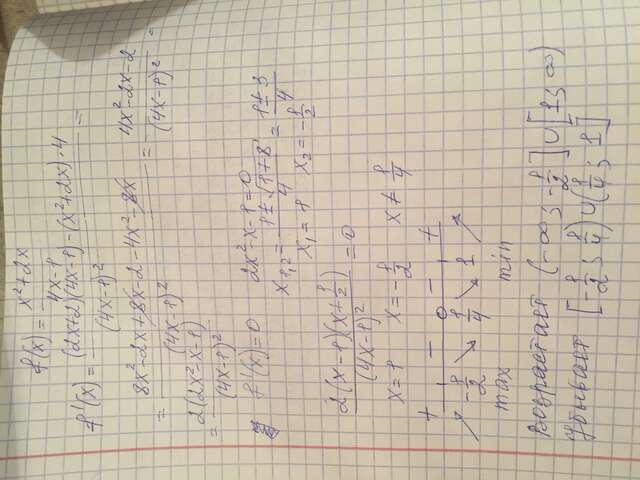 f(x) = x²+2x / 4x-1
f'(x) = (2x+2)(4x-1)-(x²+2x)·4 / (4x-1)² =
= 8x²-2x+8x-2-4x²-8x / (4x-1)² = 4x²-2x-2 / (4x-1)² =
= 2(2x²-x-1) / (4x-1)²
f'(x)=0 2x²-x-1=0
x₁,₂ = 1±√1+8 / 4 = 1±3 / 4
x₁=1 x₂=-1/2
2(x-1)(x+1/2) / (4x-1)² = 0
x=1 x=-1/2 x≠1/4
+ - - +
-1/2 0 1/4 1
max min
Возрастает (-∞; -1/2]∪[1; ∞)
Убывает [-1/2; 1/4)∪(1/4; 1]